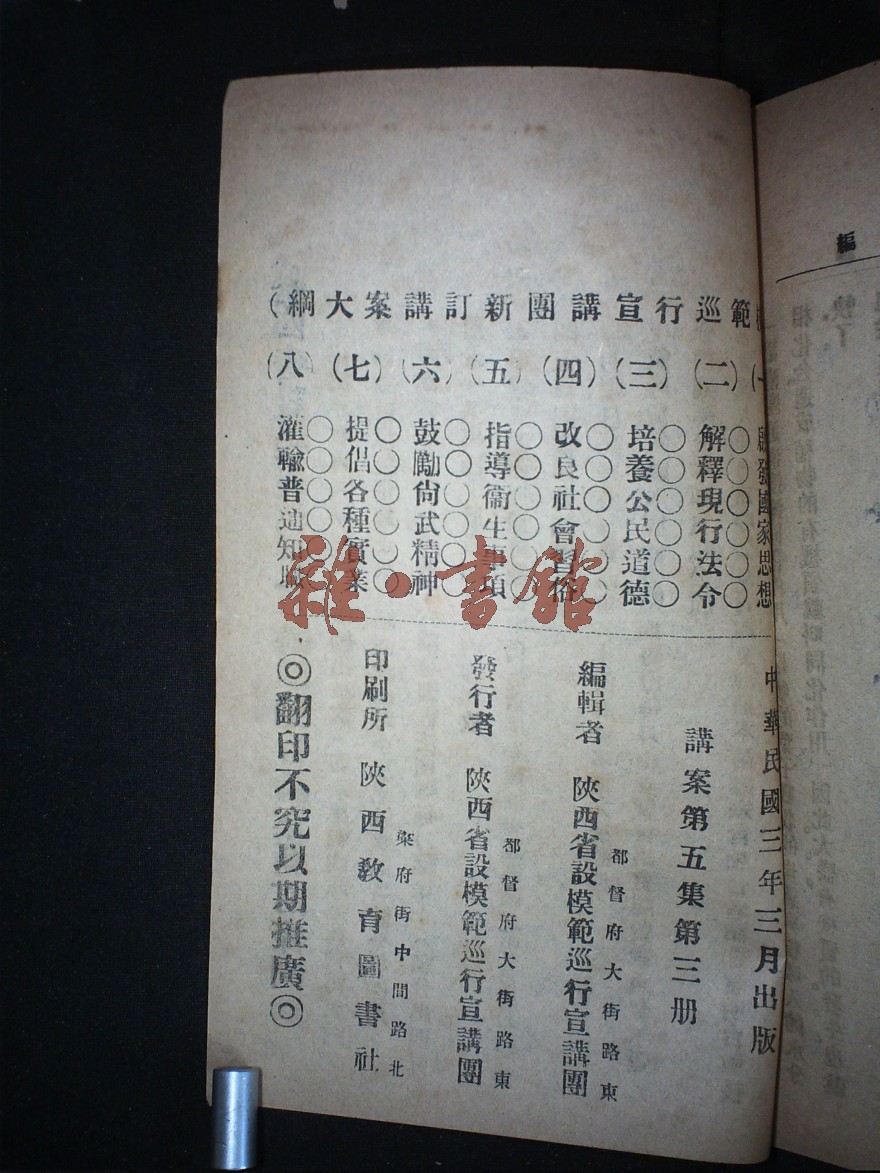 範巡行宣講團新訂講案大綱
(一)啟發國家思想
(二)解釋現行法令
(三)培養公民道德
(四)改良社會習俗
(五)指導衛生事項
(六)鼓勵尙武精神
(七)提倡各種實業
(八)灌輸普通知識
中華民國三年三月出版
講案第五集第三册
編輯者 陝西省設模範巡行宣講團
都督府大街路東
發行者 陝西省設模範巡行宣講團
都督府大街路東
印刷所 陝西敎育圖書社
梁府街中間路北
◎翻印不究以期推廣◎
編
雜·書館